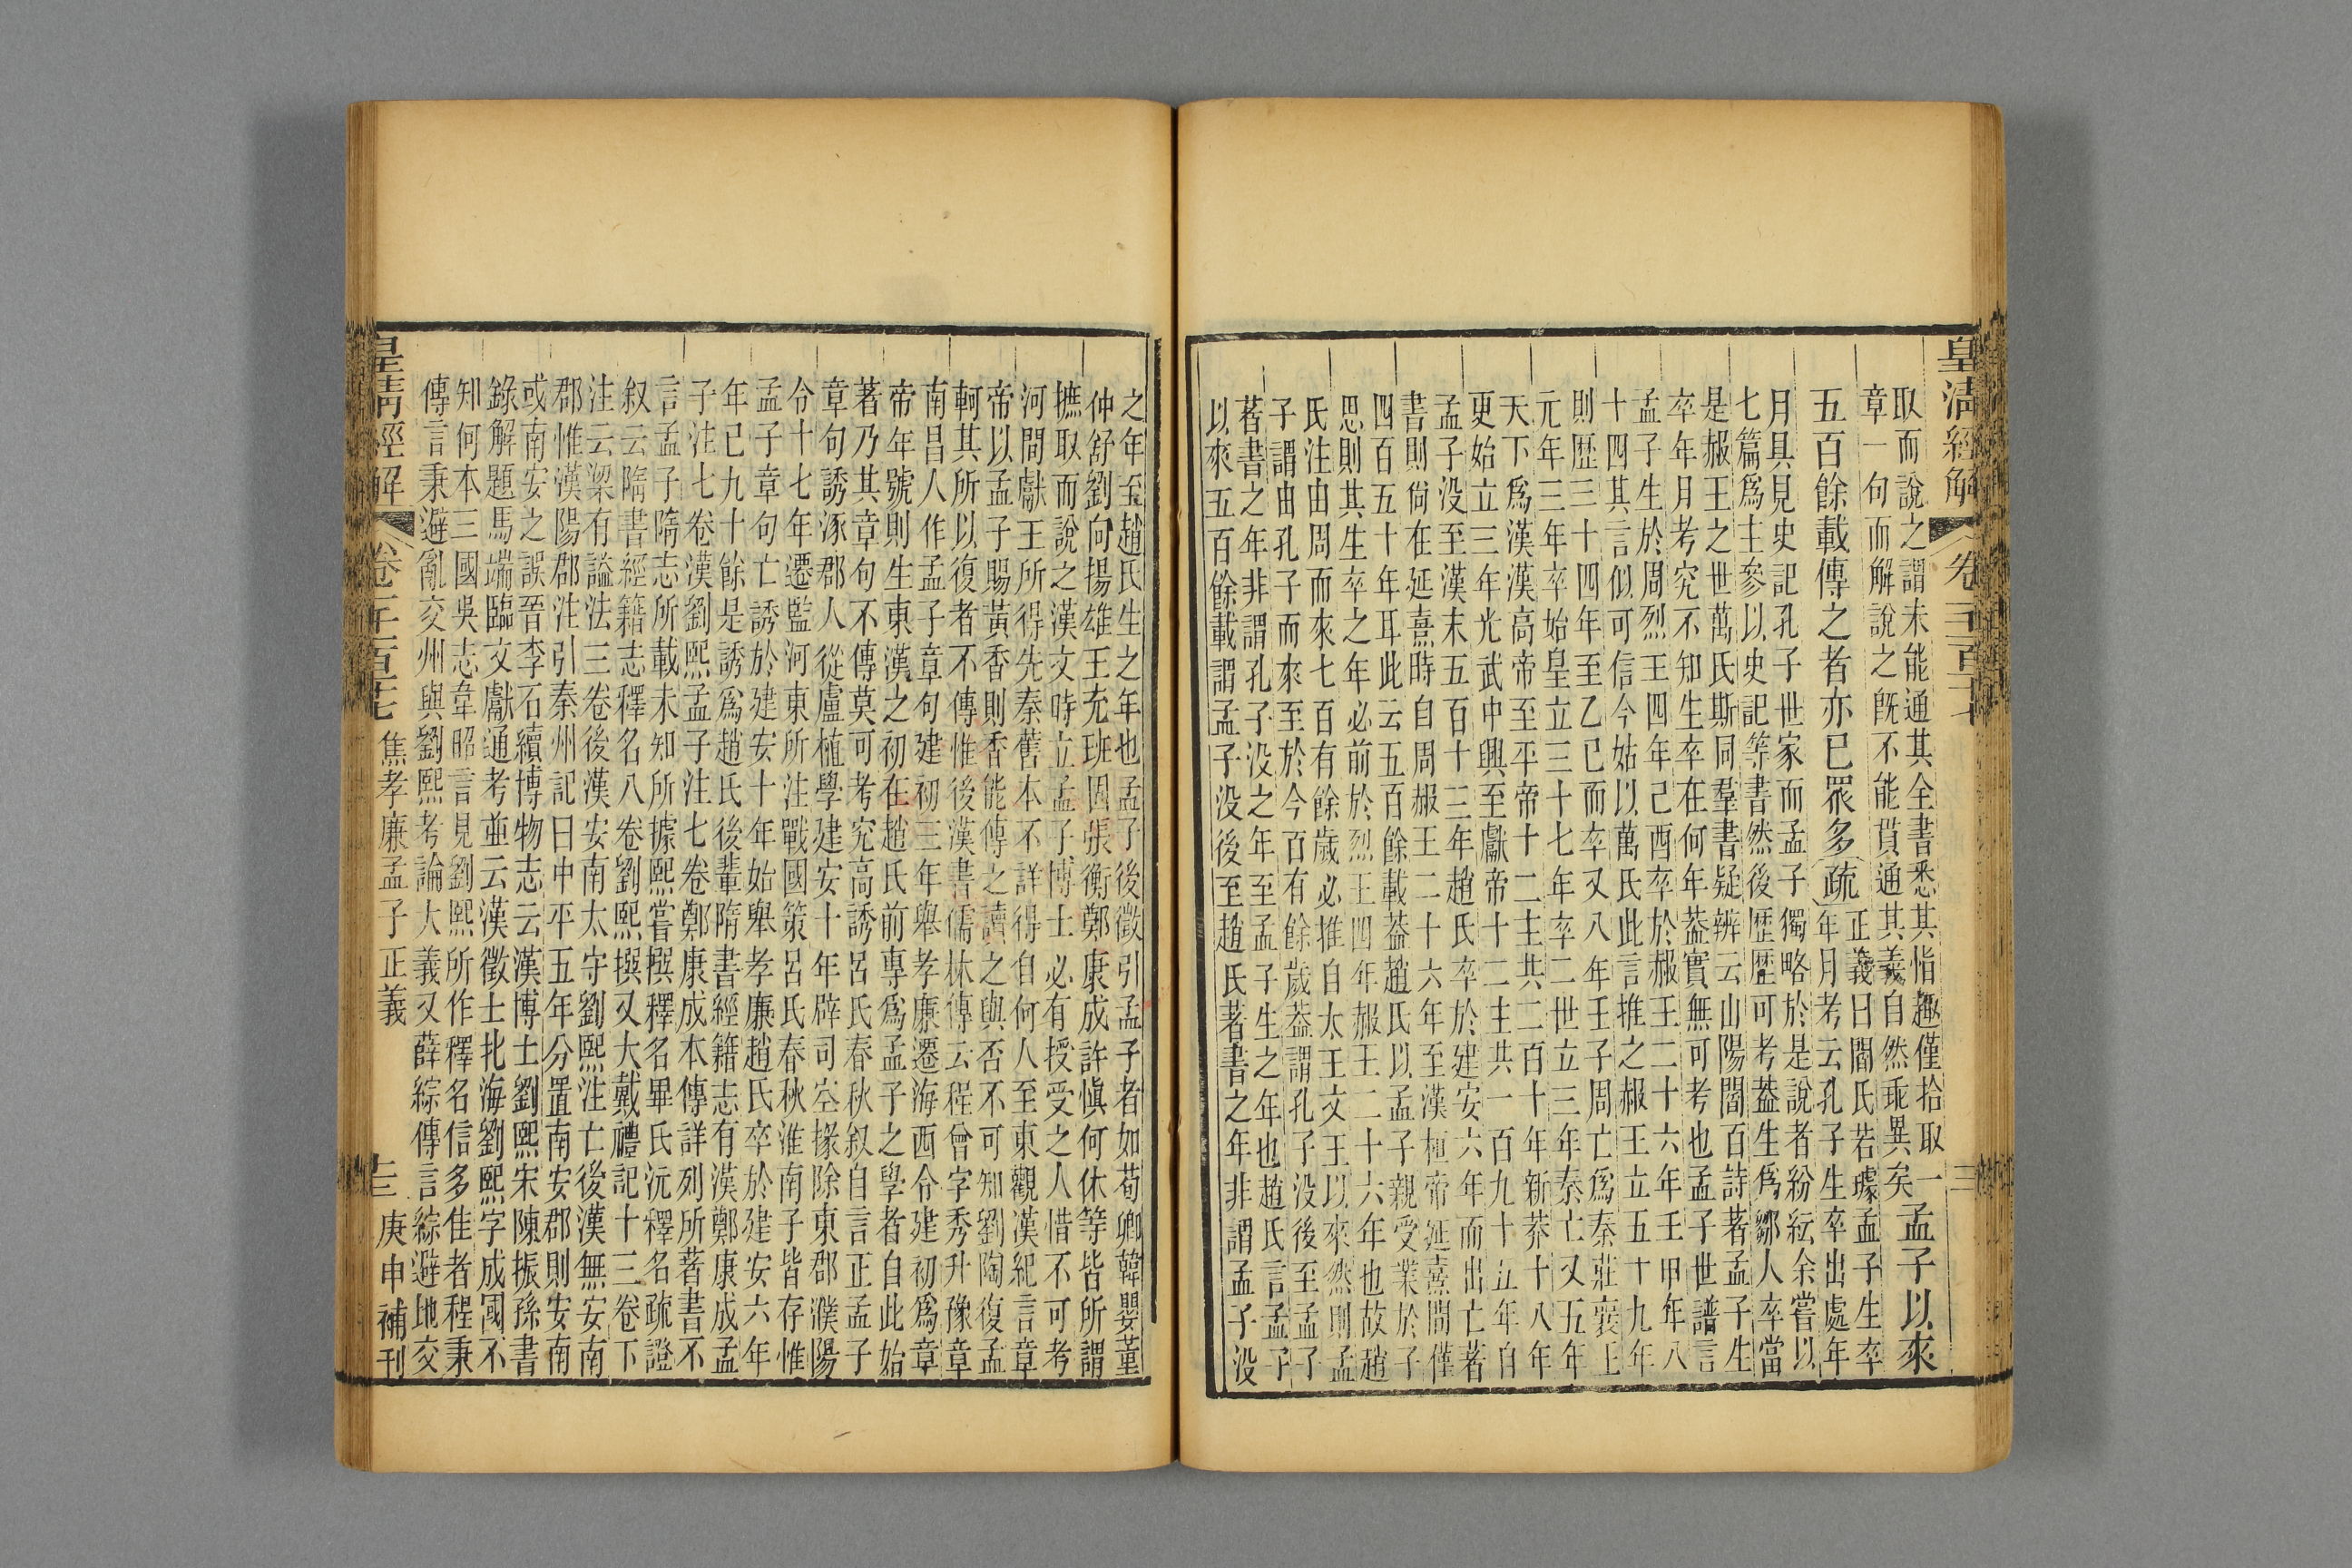 皇清經解 卷一千一百十七 三
取而說之謂未能通其全書悉其恉趣僅拾取一
章一句而解說之旣不能貫通其義義自然乖異矣孟子以來
五百餘載傳之者亦已眾多疏正義曰閻氏若璩孟子生卒
年月考云孔子生卒出處年
月具見史記孔子世家而孟子獨略於是說者紛紜余嘗以
七篇爲主參以史記等書然後歷歷可考葢生爲鄒人卒當
是赧王之世萬氏斯同羣書疑辨云山陽閻百詩著孟子生
卒年月考究不知生卒在何年葢實無可考也孟子世譜言
孟子生於周烈王四年己酉卒於赧王二十六年壬甲年八
十四其言似可信今姑以萬氏此言推之赧王立五十九年
則歷三十四年至乙巳而卒又八年壬子周亡爲秦莊襄王
元年三年卒始皇立三十七年卒二世立三年秦亡又五年
天下爲漢漢高帝至平帝十二主共二百十年新莽十八年
更始立三年光武中興至獻帝十二主共一百九十五年自
孟子没至漢末五百十三年趙氏卒於建安六年而出亡著
書則尙在延熹時自周赧王二十六年至漢桓帝延熹間僅
四百五十年耳此云五百餘載葢趙氏以孟子親受業於子
思則其生卒之年必前於烈王四年赧王二十六年也故趙
氏注由周而來七百有餘歲必推自太王文王以來然則孟
子謂由孔子而來至於今百有餘歲葢謂孔子没後至孟子
著書之年非謂孔子没之年至孟子生之年也趙氏言孟子
以來五百餘載謂孟子没後至趙氏著書之年非謂孟子没
之年至趙氏生之年也孟子後徵引孟子者如荀卿韓嬰董
仲舒劉向揚雄王充班固張衡鄭康成許愼何休等皆所謂
摭取而說之漢文時立孟子博士必有授受之人惜不可考
河間獻王所得先秦舊本不詳得自何人至東觀漢紀言章
帝以孟子賜黃香則香能傳之讀之與否不可知劉陶復孟
軻其所以復者不傳惟後漢書儒林傳云程曾字秀升豫章
南昌人作孟子章句建初三年舉孝廉遷海西令建初爲章
帝年號則生東漢之初在趙氏前專爲孟子之學者自此始
著乃其章句不傳莫可考究高誘呂氏春秋叙自言正孟子
章句誘涿郡人從盧植學建安十年辟司空掾除東郡濮陽
令十七年遷監河東所注戰國策呂氏春秋淮南子皆存惟
孟子章句亡誘於建安十年始舉孝廉趙氏卒於建安六年
年已九十餘是誘爲趙氏後輩隋書經籍志有漢鄭康成孟
子注七卷漢劉熙孟子注七卷鄭康成本傳詳列所著書不
言孟子隋志所載未知所據熙嘗撰釋名畢氏沅釋名疏證
叙云隋書經籍志釋名八卷劉熙撰又大戴禮記十三卷下
注云梁有謚法三卷後漢安南太守劉熙注亡後漢無安南
郡惟漢陽郡注引秦州記曰中平五年分置南安郡則安南
或南安之誤晉李石續博物志云漢博士劉熙宋陳振孫書
錄解題馬端臨文獻通考並云漢徵士北海劉熙字成國不
知何本三國吳志韋昭言見劉熙所作釋名信多佳者程秉
傳言秉避亂交州與劉熙考論大義又薛綜傳言綜避地交
皇清經解 卷一千一百十七 焦孝廉孟子正義 三 庚申補刊